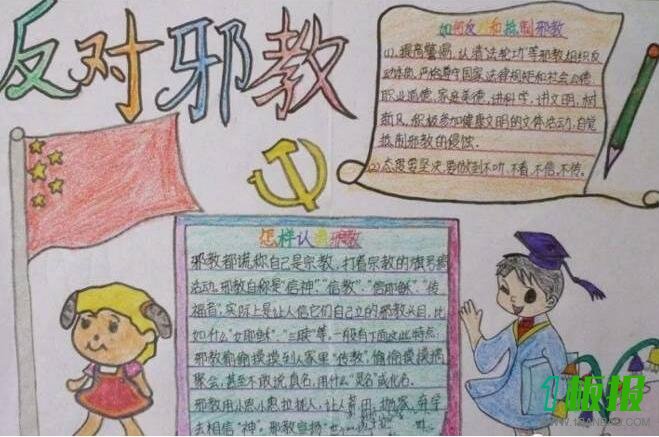 反对邪教
如何反对和抵制邪教
(1)、提高警惕,认清"法轮功"等邪教组织反
动本质,严格遵守国家法律规矩和社会公德,
职业道德,家庭美德,讲科学,讲文明,树
新风,积极参加健康文明的文体活动,自觉
抵制邪教的侵蚀.
(2)态度要坚决,要做到不听、不看、不信、不传。
怎样认清邪教
邪教都谎称自己是宗教,打着宗教的旗号搞
活动,邪教自称是"信神","信教","信耶稣""传
福音",实际上是让人信它们自己立的邪教头目,比
如什么"女耶稣"、"三赎"等,一般有下面这些特点.
邪教偷偷摸摸到人家里"传教"偷偷摸摸搞
聚会,甚至不敢说真名,用什么"灵名"或化名.
邪教用小恩小惠拉拢人,让人
去相信"神",邪教宣扬
板报